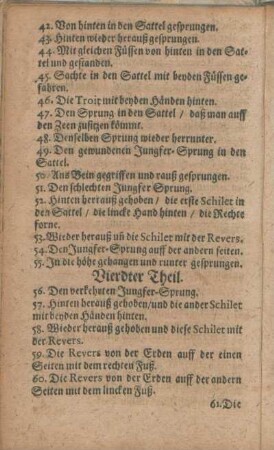 42. Von hinten in den Sattel gesprungen.
43. Hinten wieder herauß gesprungen.
44. Mit gleichen Füssen von hinten in den Sat-
tel und gestanden.
45. Sachte in den Sattel mit beyden Füssen ge-
fahren.
46. Die Troit mit beyden Händen hinten.
47. Den Sprung in den Sattel / daß man auff
den Zeen zusitzen kömmt.
48. Denselben Sprung wieder herrunter.
49. Den gewundenen Jungfer-Sprung in den
Sattel.
50. Ans Bein gegriffen und rauß gesprungen.
51. Den schlechten Jungfer Sprung.
52. Hinten herrauß gehoben / die erste Schilet in
den Sattel / die lincke Hand hinten / die Rechte
forne.
53. Wieder herauß uñ die Schilet mit der Revers.
54. Den Jungfer-Sprung auff der andern seiten.
55. In die höhe gehangen und runter gesprungen.
Vierdter Theil.
56. Den verkehrten Jungfer-Sprung.
57. Hinten herauß gehoben/und die ander Schilet
mit beyden Händen hinten.
58. Wieder herauß gehoben und diese Schilet mit
der Revers.
59. Die Revers von der Erden auff der einen
Seiten mit dem rechten Fuß.
60. Die Revers von der Erden auff der andern
Seiten mit dem lincken Fuß.
61. Die